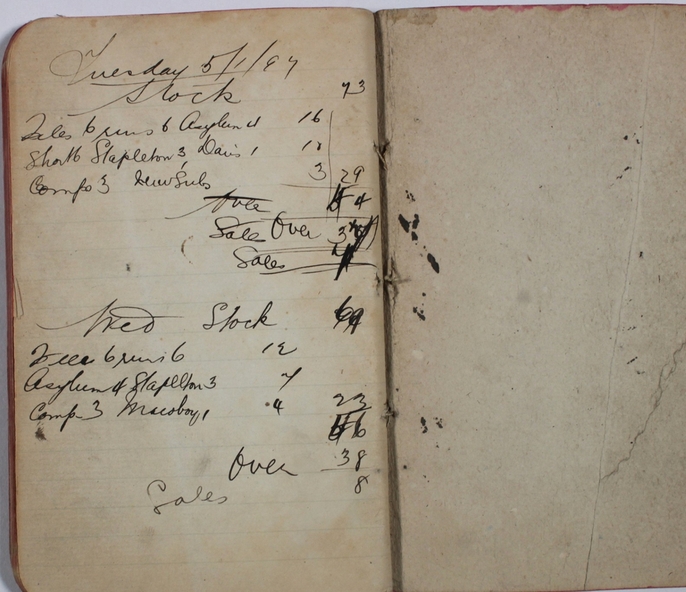 Tuesday 5/1/97
Stock 73
6 runs 6 Asylum 4 16
Short 6 Stapleton 3, Davis 1 10
Comp 3 3 29
Over 44
Sale Over
Sales
Wed Stock 69
6 runs 6 12
Asylum 4 Stapleton 3 7
Comp 3 1 4 23
46
Over 38
Sales 8